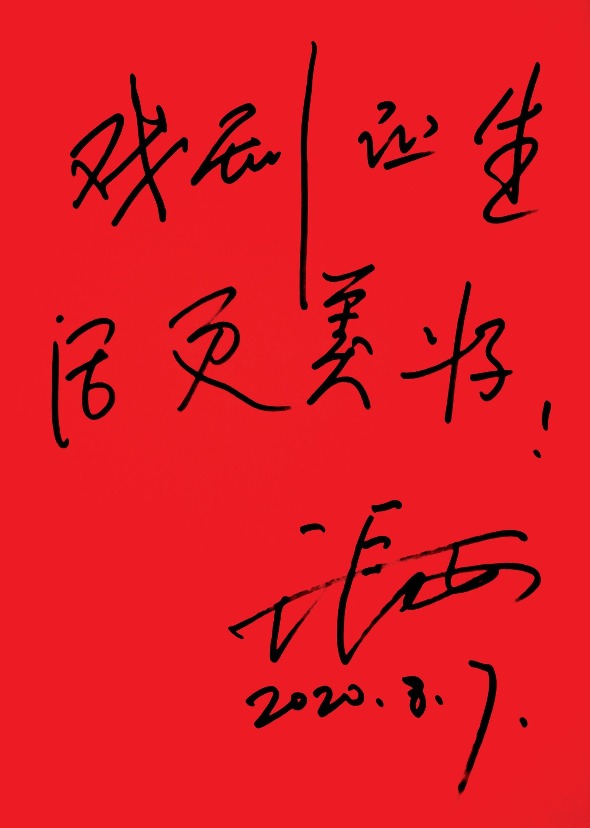 戏剧让生
活更美好!
2020.8.7.